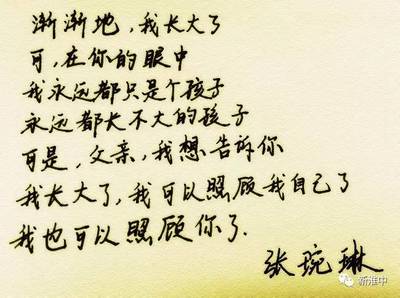 渐渐地，我长大了
可，在你的眼中
我永远都只是个孩子
永远都长不大的孩子
可是，父亲，我想告诉你
我长大了，我可以照顾我自己了
我也可以照顾你了.
张琬琳
新淮中